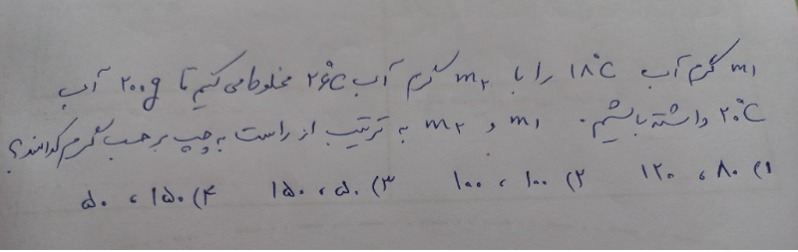 m₁ گرم آب ۱۸°C را با m₂ گرم آب ۲۶°C مخلوط می کنیم تا ۲۰۰g آب
۲۰°C داشته باشیم. m₁ و m₂ به ترتیب از راست به چپ بر حسب گرم کدامند؟
۱) ۸۰ ، ۱۲۰ ۲) ۱۰۰ ، ۱۰۰ ۳) ۵۰ ، ۱۵۰ ۴) ۱۵۰ ، ۵۰